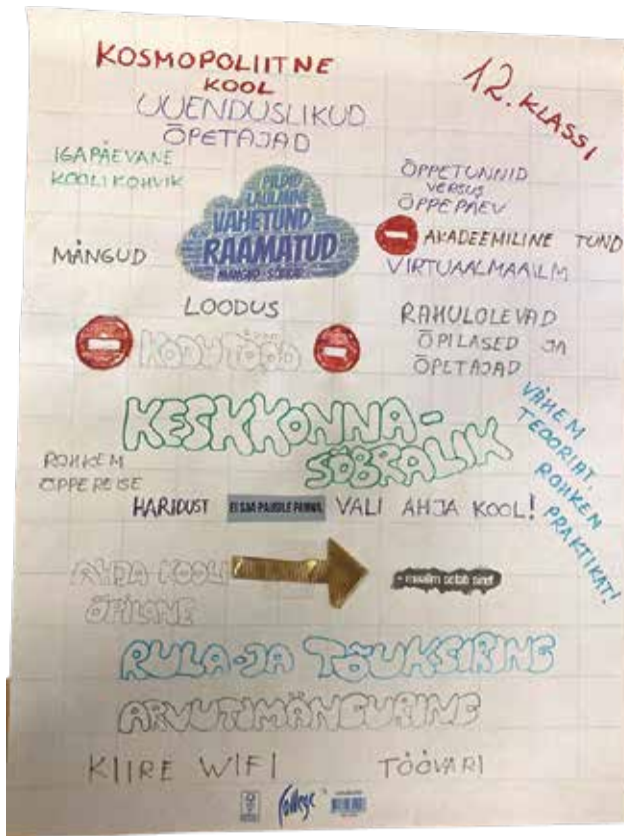 KOSMOPOLIITNE
KOOL
12. KLASSI
UUENDUSLIKUD
ÕPETAJAD
IGAPÄEVANE
KOOLIKOHVIK
PILDID
LAULMINE
VAHETUND
RAAMATUD
MÄNGUD
ÕPPETUNNID
VERSUS
ÕPPEPÄEV
AKADEEMILINE TUND
VIRTUAALMAAILM
LOODUS
KODUTÖÖD
RAHULOLEVAD
ÕPILASED JA
ÕPETAJAD
KESKKONNA-
SÕBRALIK
VÄHEM
TEOORIAT.
ROHKEM
PRAKTIKAT!
ROHKEM
ÕPPEREISE
HARIDUST EI SAA PAUSILE PANNA, VALI AHJA KOOL!
AHJA KOOLI
ÕPILANE
- maailm ootab sind!
RULA-JA TÕUKSIRING
ARVUTIMÄNGURING
KIIRE WIFI
TÖÖVARI
College